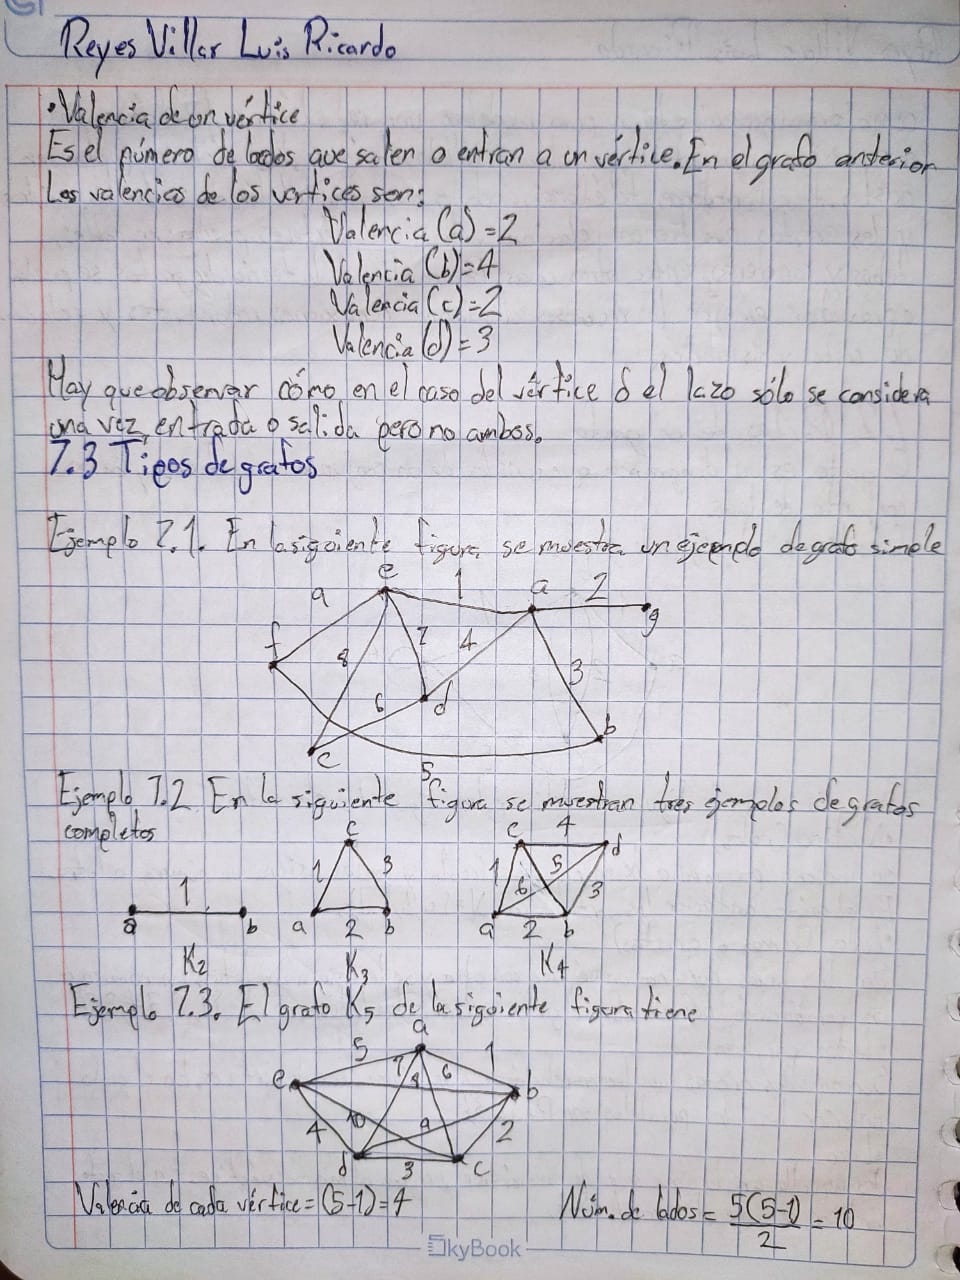 Reyes Villar Luis Ricardo
•Valencia de un vértice
Es el número de lados que salen o entran a un vértice. En el grafo anterior
Las valencias de los vertices son:
Valencia (a)=2
Valencia (b)=4
Valencia (c)=2
Valencia (d)=3
Hay que observar cómo en el caso del vértice d el lazo sólo se considera
una vez, entrada o salida pero no ambos.
7.3 Tipos de grafos
Ejemplo 7.1. En la siguiente figura, se muestra un ejemplo de grafo simple
e 1 a 2 g
9
f 8 7 4 3
6 d b
c
5
Ejemplo 7.2 En la siguiente figura se muestran tres ejemplos de grafos
completos
a 1 b
K2
c
1 3
a 2 b
K3
c 4 d
1 6 5 3
a 2 b
K4
Ejemplo 7.3. El grafo K5 de la siguiente figura tiene
a
5 7 8 6 1
e b
4 10 9 2
d 3 c
Valencia de cada vértice = (5-1)=4
Núm. de lados = 5(5-1)/2 = 10
SkyBook